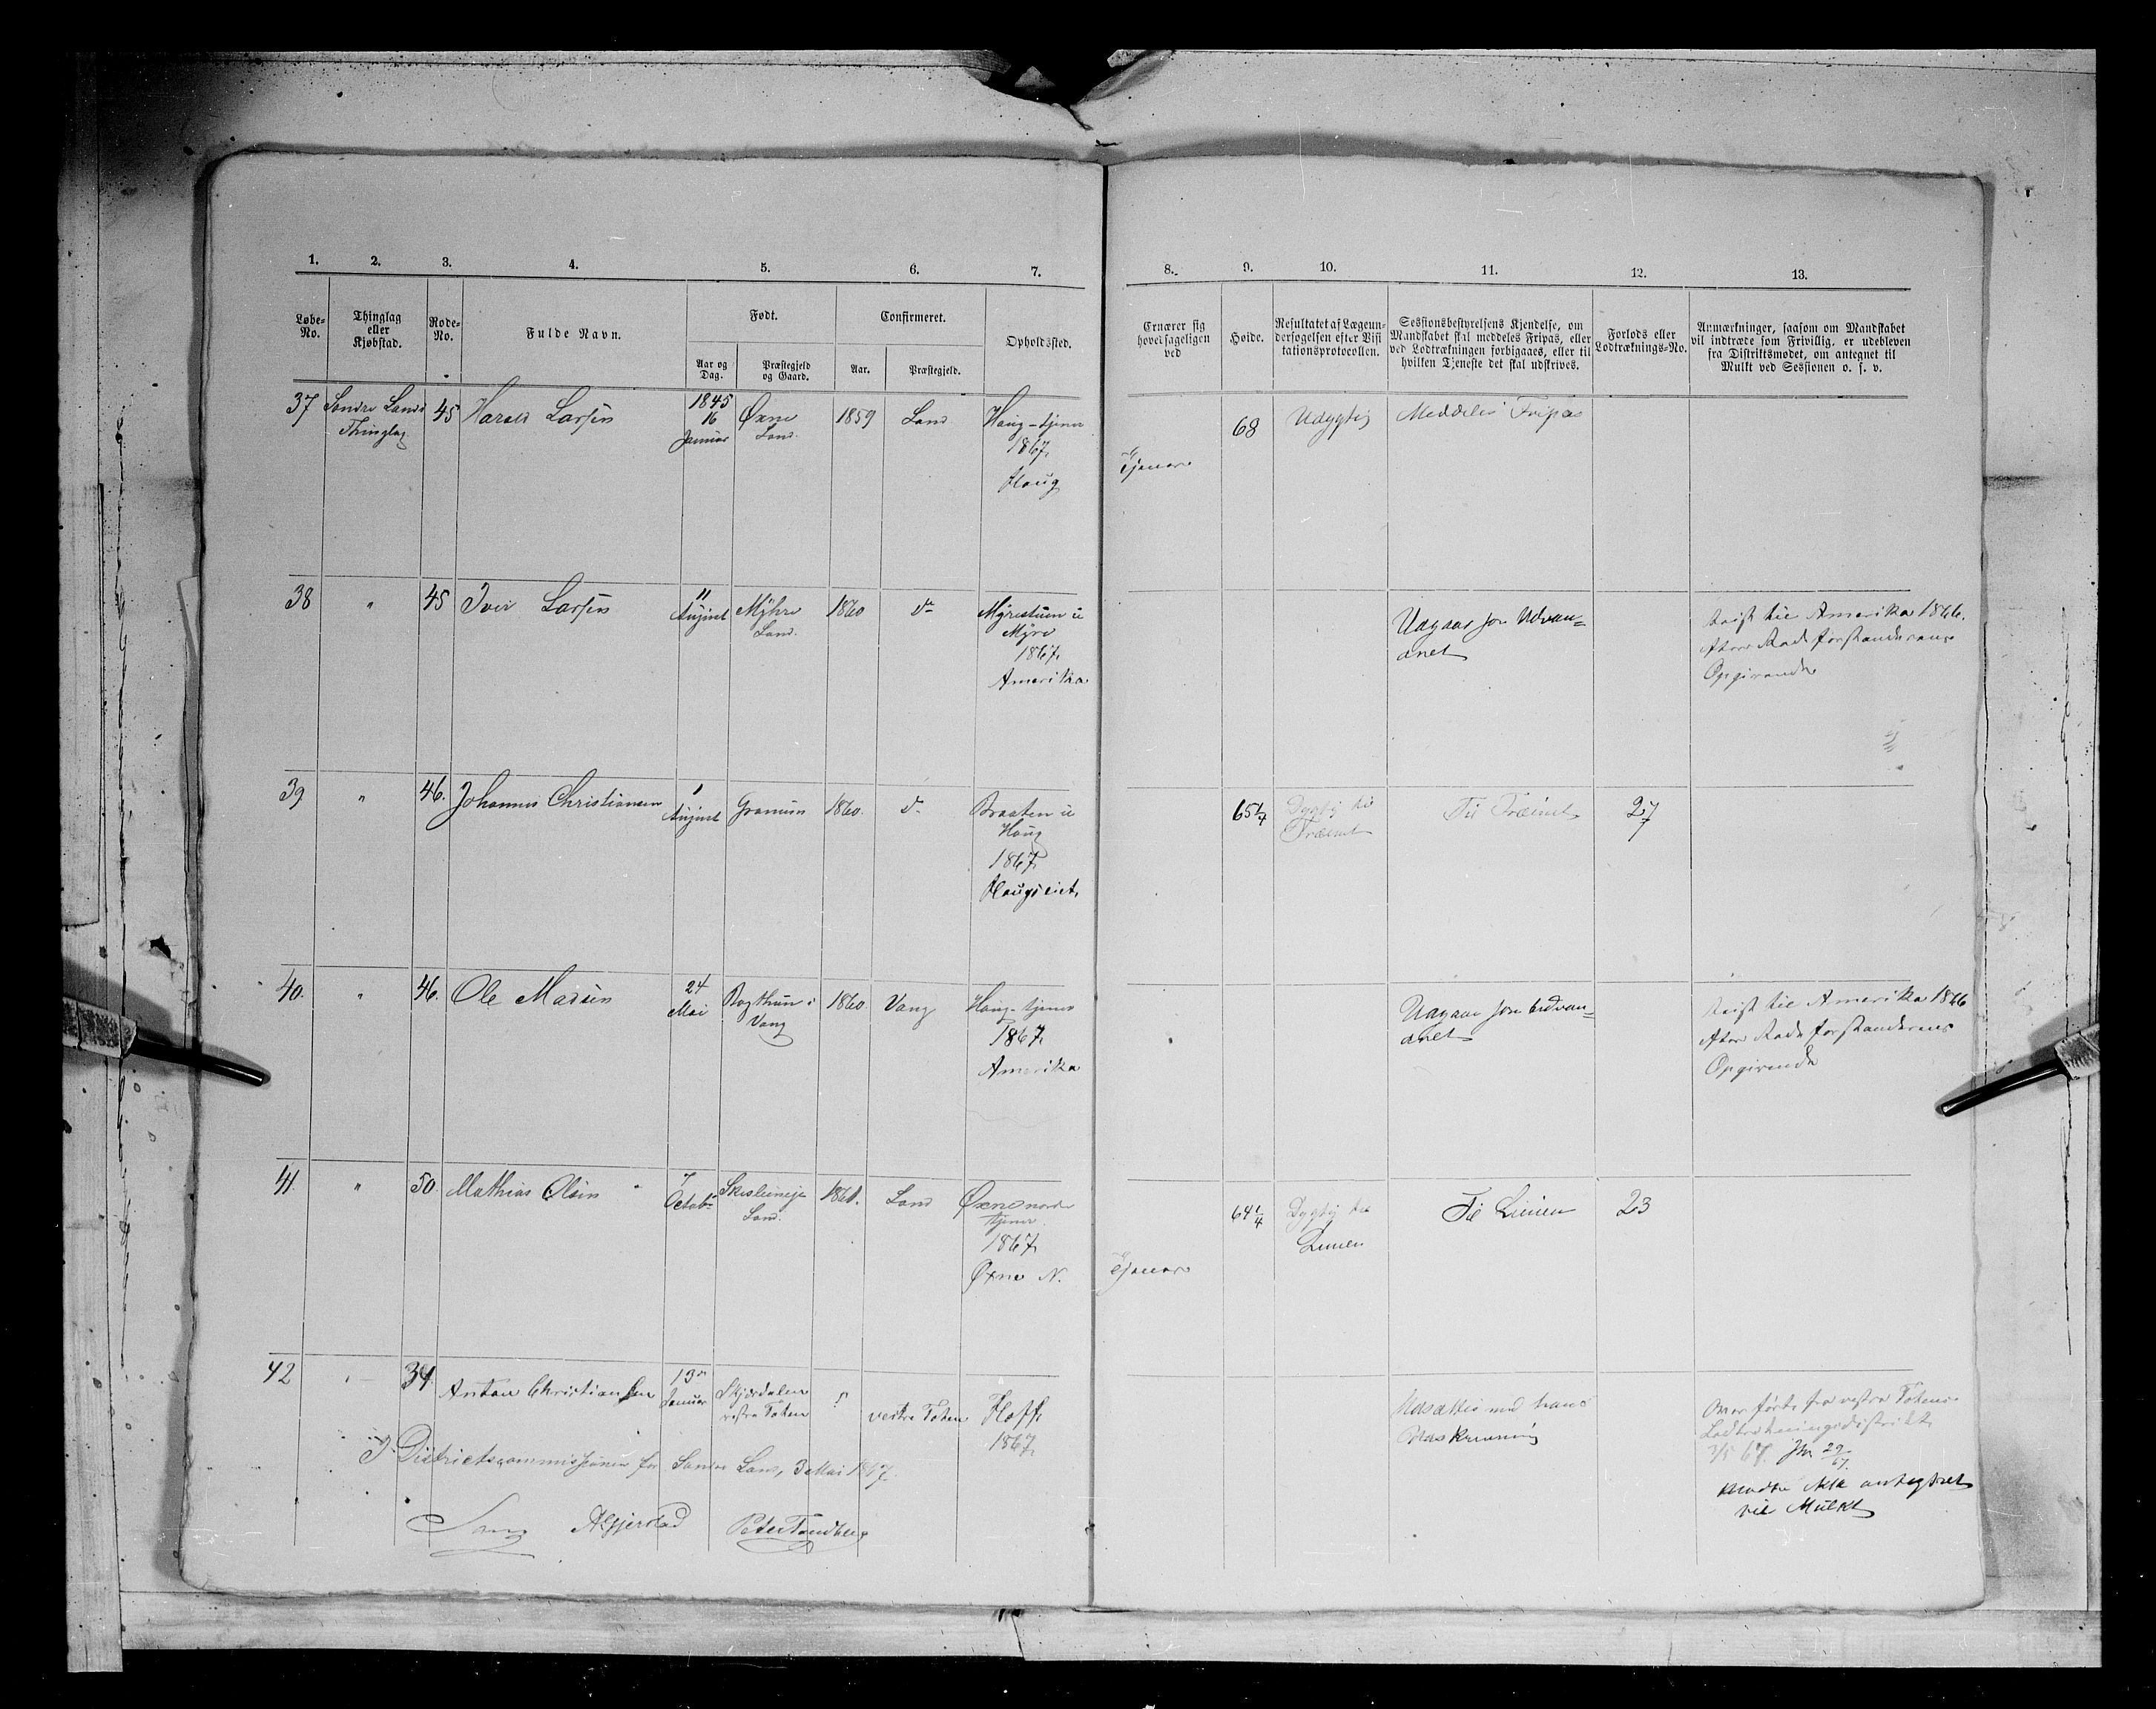 1. 2. 3. 4. 5. 6. 7. 8. 9. 10. 11. 12. 13.
Løbe-No.
Thinglag eller Kjøbstad.
Rode-No.
Fulde Navn.
Født.
Aar og Dag.
Præstegjeld og Gaard.
Confirmeret.
Aar.
Præstegjeld.
Opholdssted.
Ernærer sig hovedsageligen ved
Høide.
Resultatet af Lægeundersøgelsen efter Visitationsprotocollen.
Sessionsbestyrelsens Kjendelse, om Mandskabet skal meddeles Fripas, eller ved Lodtrækningen forbigaaes, eller til hvilken Tjeneste det skal udskrives.
Forlods eller Lodtræknings-No.
Anmærkninger, saasom om Mandskabet vil indtræde som Frivillig, er udebleven fra Distriktsmødet, om antegnet til Mulkt ved Sessionen o. s. v.
37 Søndre Lands Thinglag 45 Harald Larsen 1845 16 Januar Øxne Land 1859 Land Haug - tjener 1867, Haug
Tjener 68 Udygtig Meddeles Fripas
38 " 45 Iver Larsen 11 August Myhre Land. 1860 do Myrestuen u Myre 1867, Amerika
Udgaar som Udvandret
Reist til Amerika 1866. Rodeforstanderens Opgivende
39 " 46. Johannes Christiansen 1 August Granum 1860. do Braaten u Haug 1867, Haugseiet,
65 1/4 Dygtig til Trainet Til Trainet 27
40. " 46. Ole Madsen 24 Mai Vang 1860 Vang Haug - tjener 1867, Amerika
Udgaar som Udvandret
Reist til Amerika 1866 Rodeforstanderens Opgivende
41 " 50. Mathias Olsen 7 Octobr Land. 1861. Land Øxne nordre tjener. 1867, Øxne N.
Tjener 64 1/4 Dygtig til Linien Til Linien 23
42 34 Anton Christiansen 13 Januar vestre Toten ? vestre Toten Hoff, 1867,
Udsættes med hans Udskrivning
Overført fra vestre Totens Lodtrækningsdistrikt 3/5 67.
Mødte ikke antegnet til Mulkt
I Districtscommissionen for Søndre Land, 3 Mai 1867.